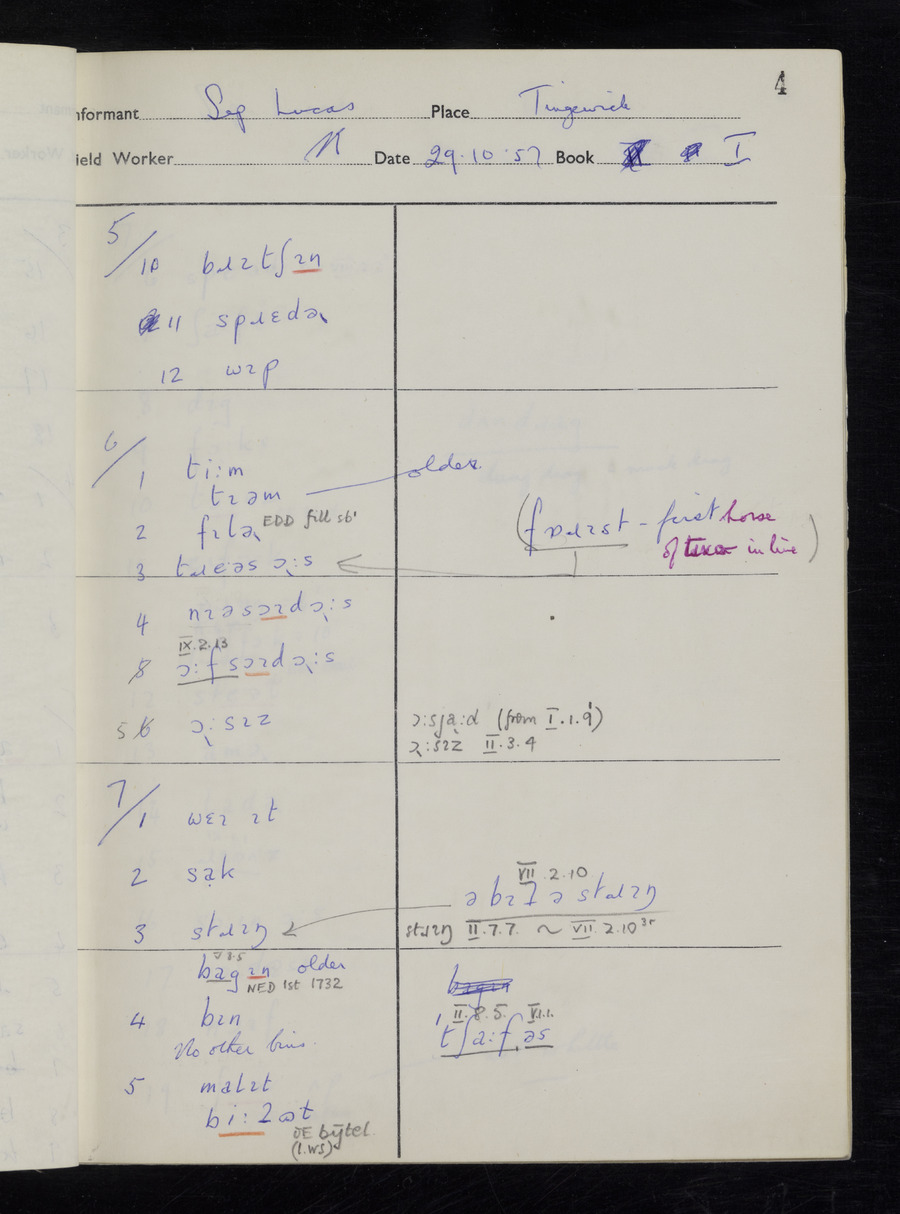 4
nformant Sep Lucas Place Tingewick
ield Worker N Date 29.10.57 Book I
5/
10 bɹɪtʃɪn
11 spɹɛdəɻ
12 wɪp
6/
1 ti:m
tɪəm older
2 fɪləɻ EDD fill sb¹
(fɒɹɪst - first horse
of in line)
3 tɹeəs ɔ̢:s
4 nɪəsɔɪdɔ̢:s
IX.2.13
8 ɔ:fsɔɪdɔ̢:s
5 6 ɔ̢:sɪz
ɔ:sja̢:d (from I.1.9)
ɔ̢:sɪz II.3.4
7/
1 wɛɪ ɪt
2 sạk
VII.2.10
ə bɪɫ ə stɹɪŋ
3 stɹɪŋ
stɹɪŋ II.7.7. ~ VII.2.10³ʳ
V 8.5
bagɪn older
NED 1st 1732
bagɪn
4 bɪn
No other bins.
II.8.5. V.1.1.
'tʃa:f,əs
5 malɪt
bi:ʔɷt
OE bȳtel.
(l.WS)